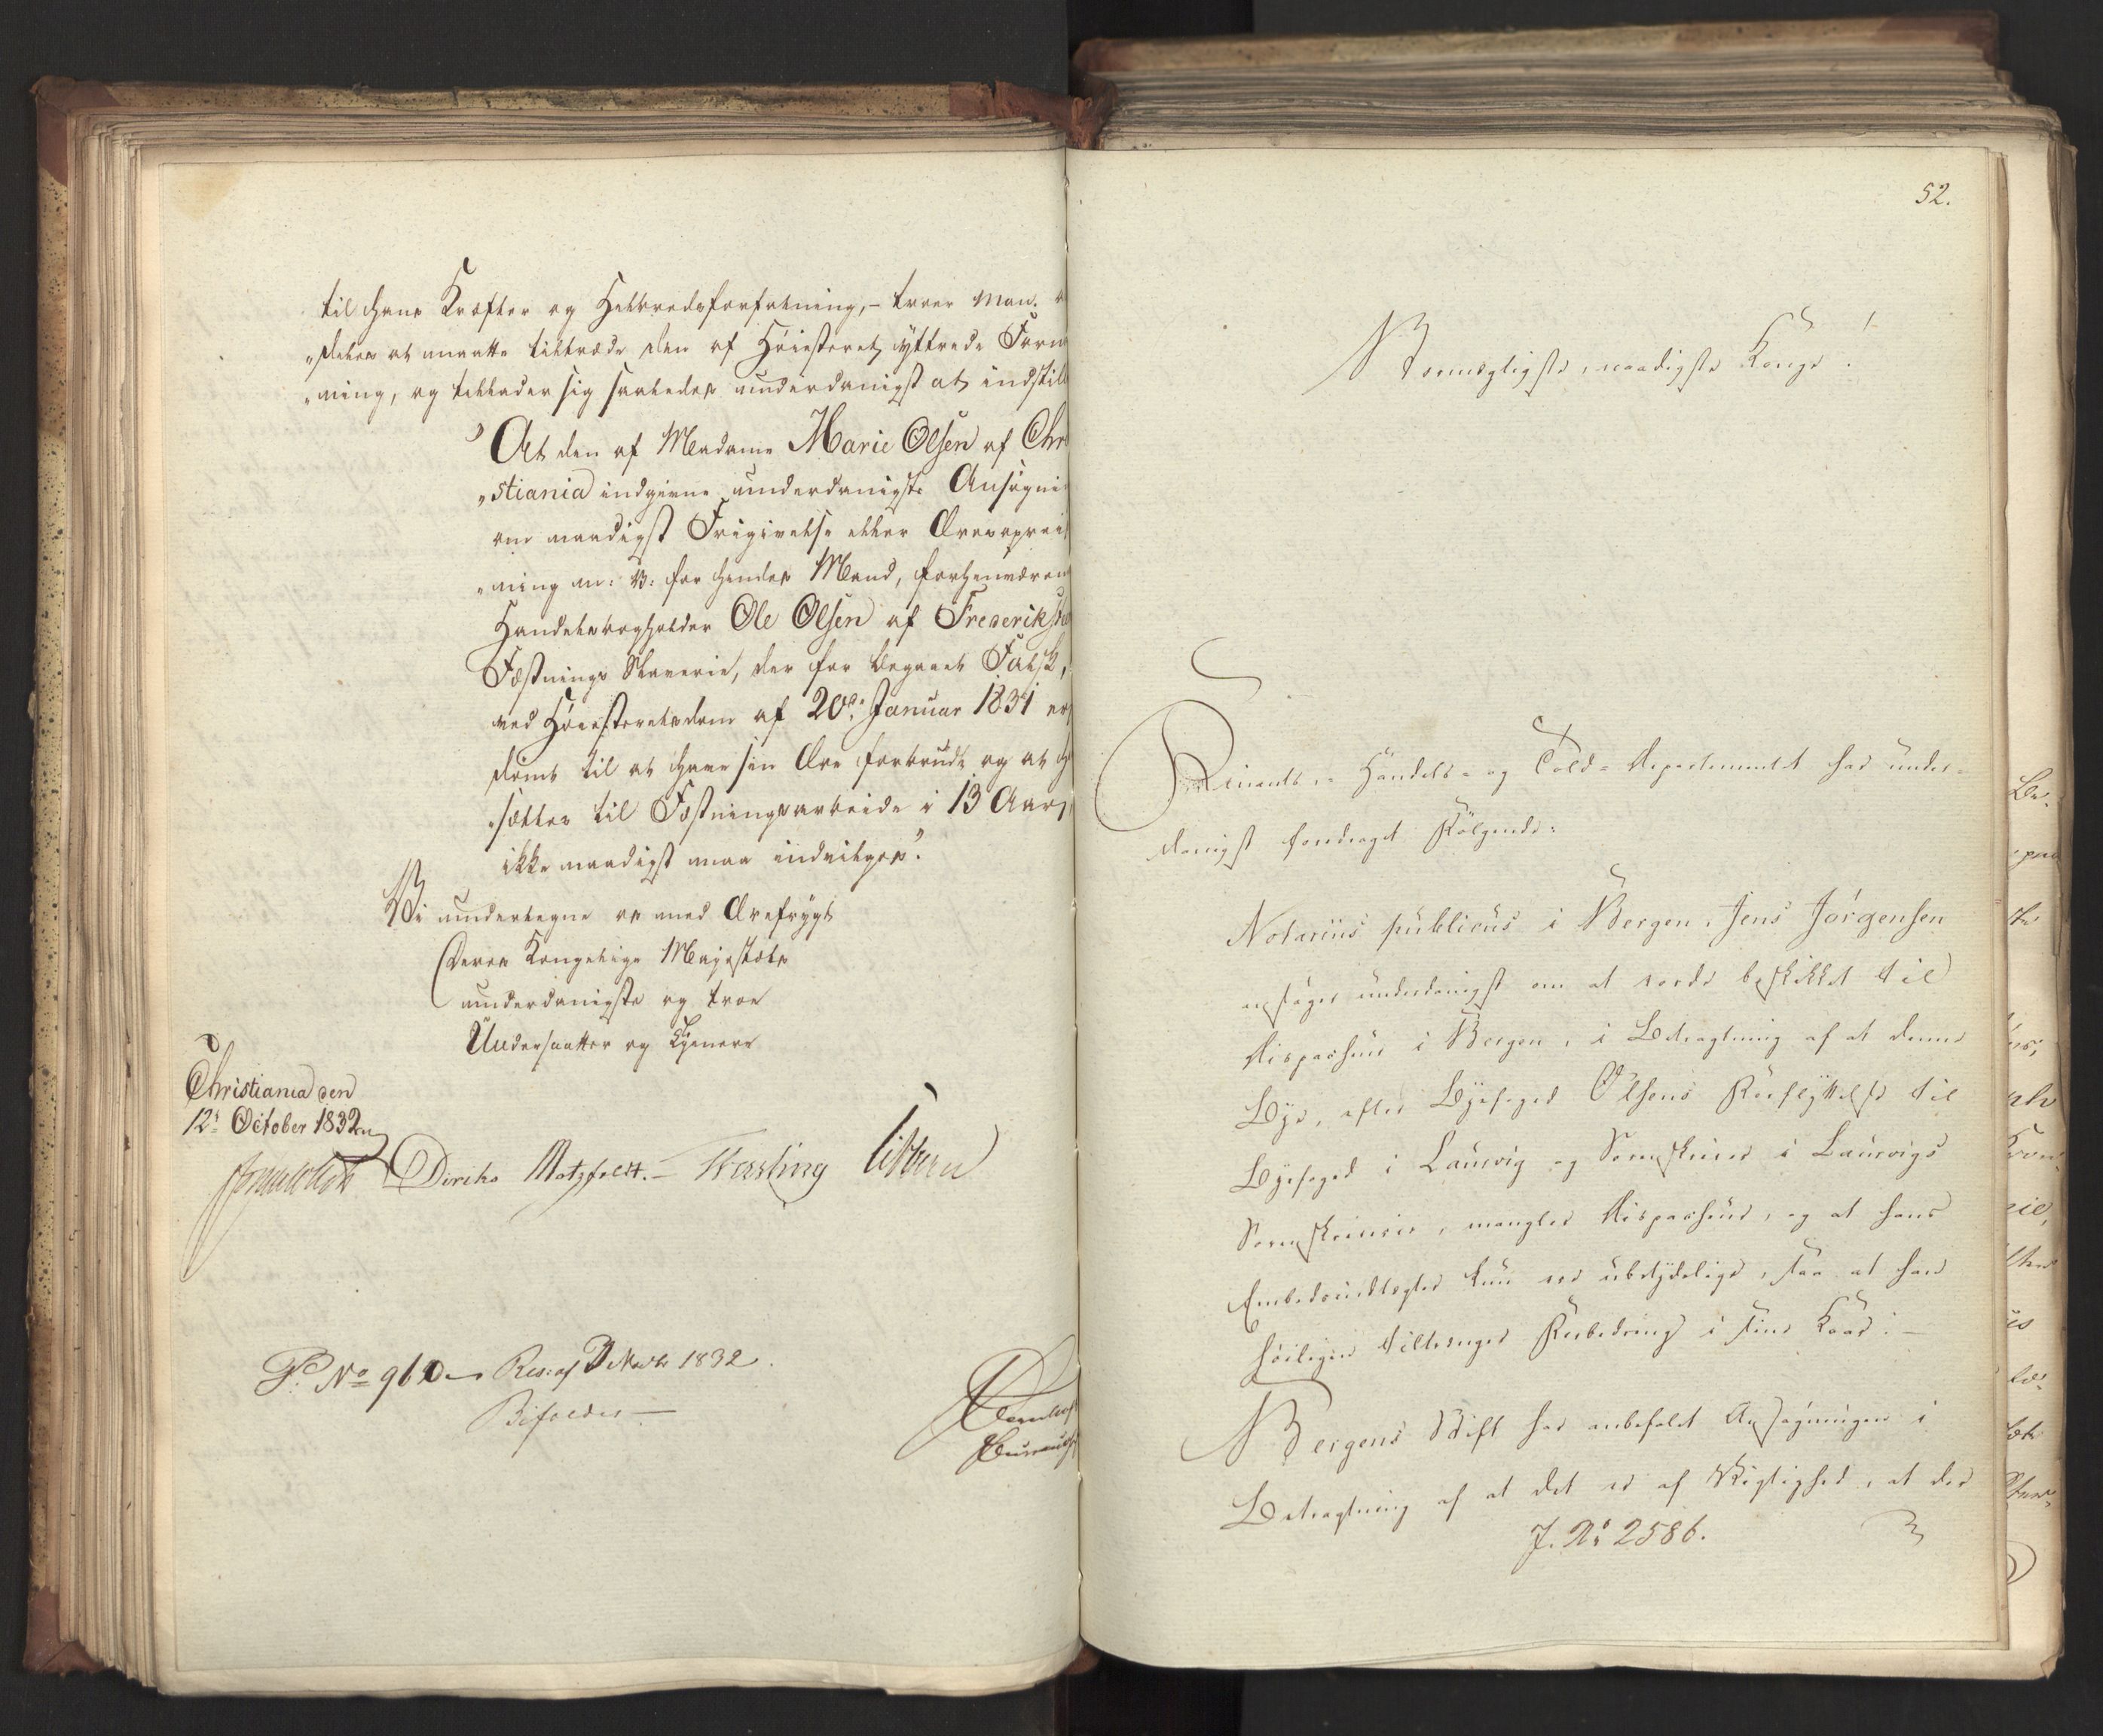 til hans Kræfter og Helbredsforfatning, – troer man
„deles at maatte tiltræde den af Høiesteret yttrede Form
„ning, og tillader sig saaledes underdanigst at indstill
„At den af Madame Marie Olsen af Chri
„stiania indgivne underdanigste Ansøgni
om naadigst Frigivelse eller Æresoprei
„ning m: v: for hendes Mand, forhenværen
Handelsbogholder Ole Olsen af Frederikst
Fæstnings Slaverie, der for begaaet Falsk,
ved Høiesteretsdom af 20de Januar 1831 er
dømt til at have sin Ære forbrudt og at h
„sættes til Fæstningsarbeide i 13 Aar,
ikke naadigst maa indvilges".
Vi undertegne os med Ærefrygt
Deres Kongelige Majestæts
underdanigste og troe
Undersaatter og Tjenere
Christiania den
12te October 1832
Diriks Motzfeldt. – Vessling Sibbern
No 960 Res: af 3 Novbr 1832.
Bifaldes –
52.
Stormægtigste, naadigste Konge!
Finants-, Handels- og Told-Departementet har under-
danigst foredraget Følgende:
Notarius publicus i Bergen, Jens Jörgensen
ansöger underdanigst om at vorde beskikket til
Dispacheur i Bergen, i Betragtning af at denne
Bye, efter Byefoged Olsens Forflyttelse til
Byefoged i Laurvig og Sorenskriver i Laurvigs
Sorenskriverie, mangler Dispacheur, og at hans
Embedsindtægter kun ere ubetydelige, saa at han
höiligen tiltrænger Forbedring i sine Kaar. –
Bergens Stift har anbefalet Ansögningen i
Betragtning af at det er af Vigtighed, at der
J. No 2586.